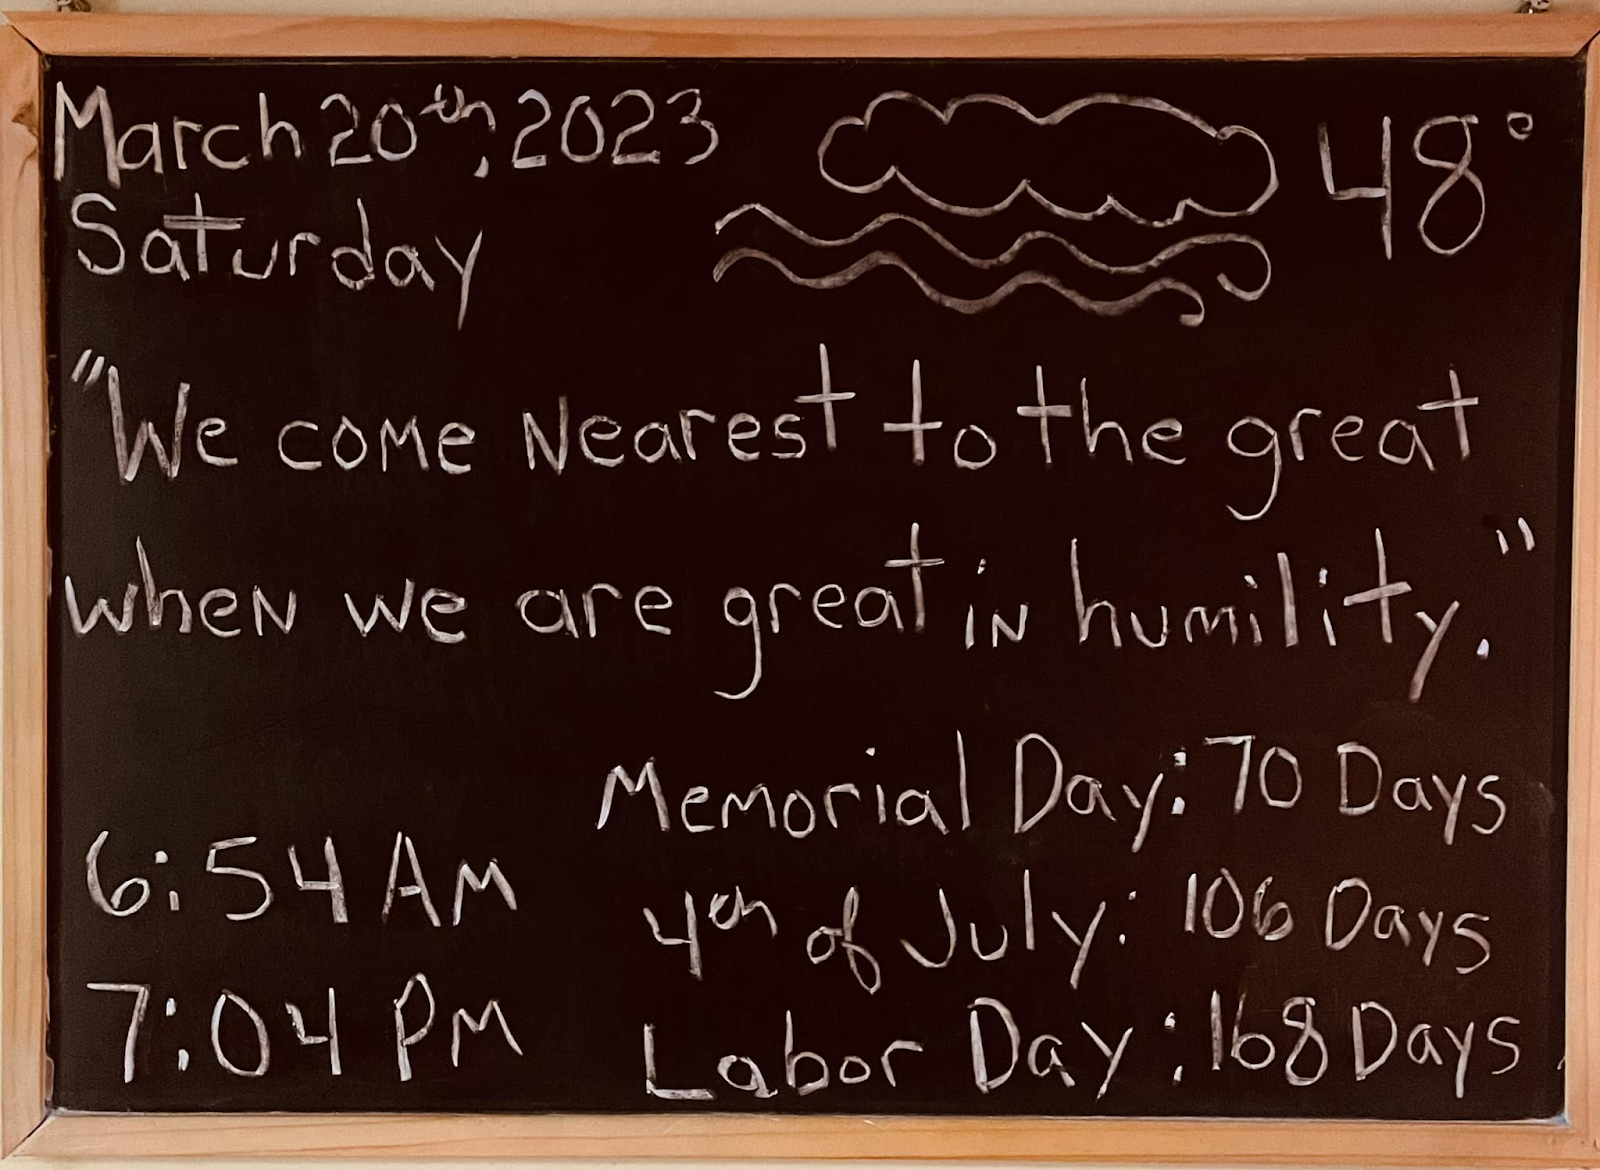 March 20th, 2023
48°
Saturday
"We come nearest to the great
when we are great in humility."
Memorial Day: 70 Days
6:54 AM
4th of July: 106 Days
7:04 PM
Labor Day: 168 Days